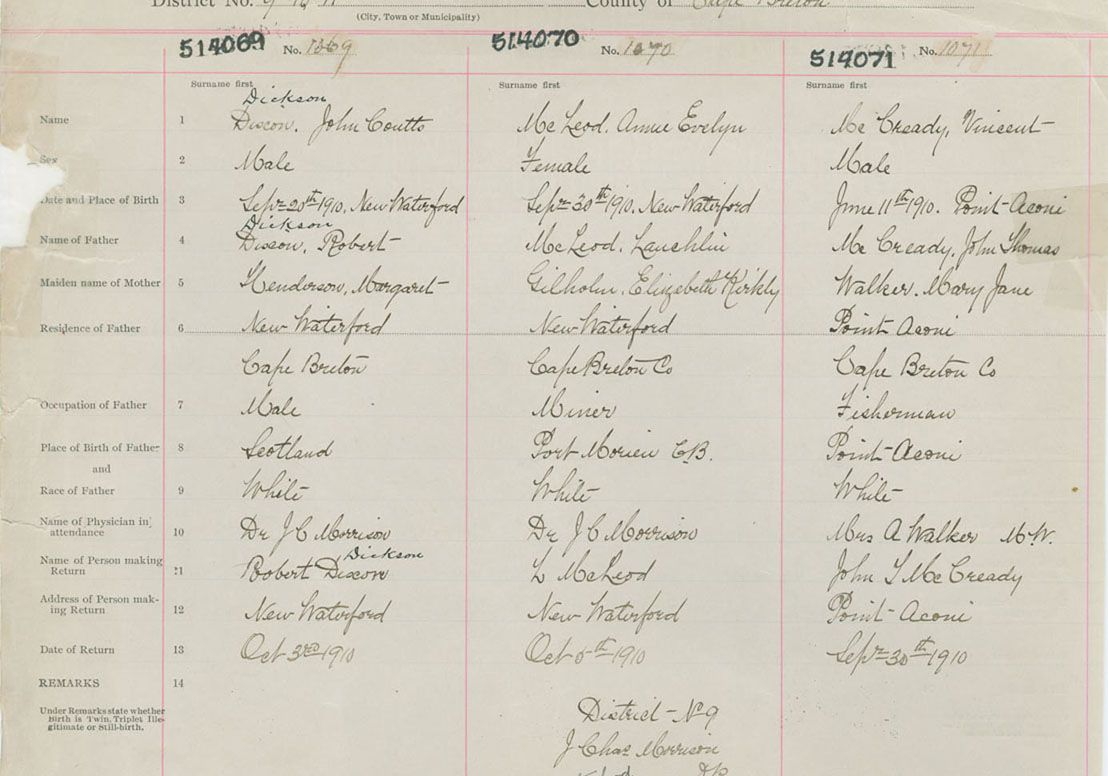 District No. 9 County of Cape Breton
(City, Town or Municipality)
514069 No. 1069 514070 No. 1070 514071 No. 1071
Surname first Surname first Surname first
Dickson
Name 1 Discon, John Coutts Mc Leod, Annie Evelyn Mc Cready, Vincent
Sex 2 Male Female Male
Date and Place of Birth 3 Sept 20th 1910, New Waterford Sept 30th 1910, New Waterford June 11th 1910. Point Aconi
Dickson
Name of Father 4 Discon, Robert McLeod, Lauchlin Mc Cready, John Thomas
Maiden name of Mother 5 Henderson, Margaret Gilholm, Elizabeth Kirkly Walker, Mary Jane
Residence of Father 6 New Waterford New Waterford Point Aconi
Cape Breton Cape Breton Co Cape Breton Co
Occupation of Father 7 Male Miner Fisherman
Place of Birth of Father 8 Scotland Port Morien C.B. Point Aconi
and
Race of Father 9 White White White
Name of Physician in attendance 10 Dr J C Morrison Dr J C Morrison Mrs A Walker M.W.
Dickson
Name of Person making Return 11 Robert Discon L McLeod John T McCready
Address of Person making Return 12 New Waterford New Waterford Point Aconi
Date of Return 13 Oct 3rd 1910 Oct 6th 1910 Sept 30th 1910
REMARKS 14
Under Remarks state whether
Birth is Twin, Triplet Ille-
gitimate or Still-birth.
District No 9
J Chas Morrison
DR